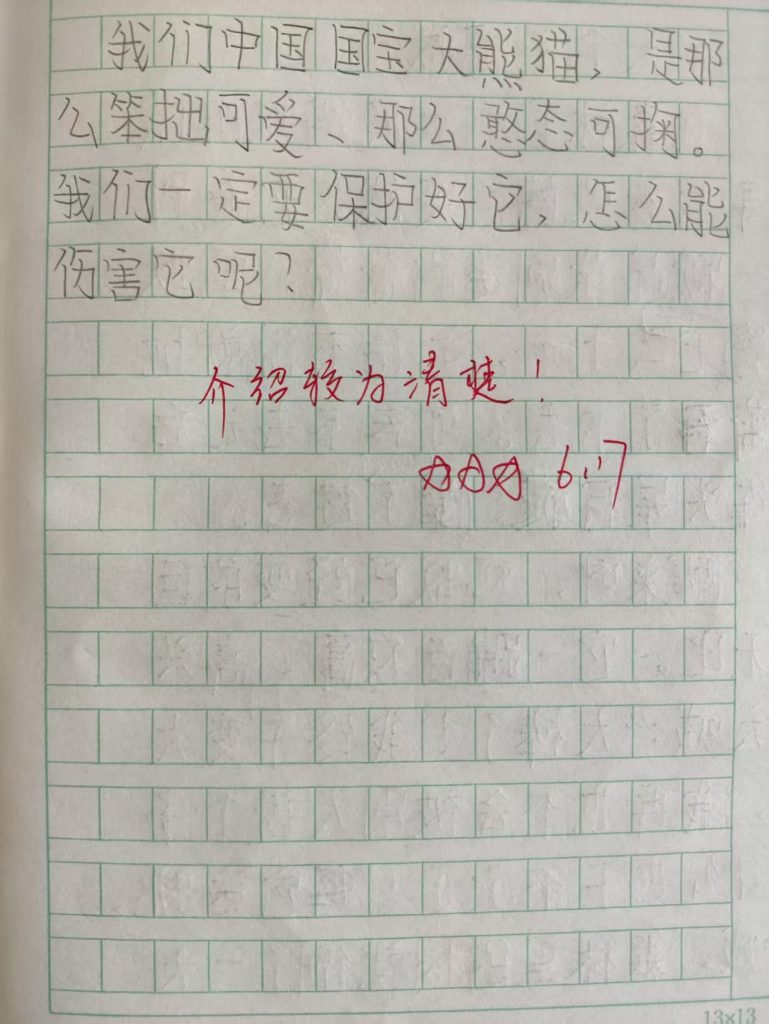 我们中国国宝大熊猫，是那
么笨拙可爱、那么憨态可掬。
我们一定要保护好它，怎么能
伤害它呢？
介绍较为清楚！
6.17
13×13